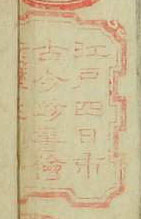 江戸四日市
古今珍書儈